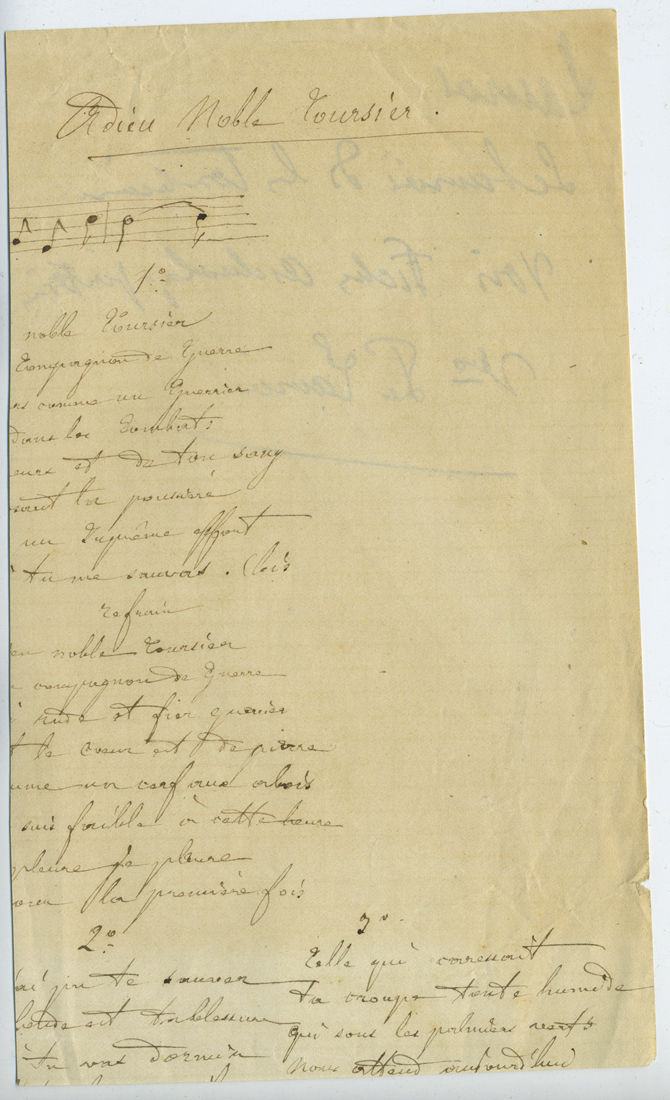 Adieu Noble Coursier.
1°
noble Coursier
Compagnon de Guerre
rs comme un Guerrier
dans les Combats
eurs et de ton sang
sant la poussière
un Suprême effort
tu me sauvas. (bis
refrain
eu noble Coursier
compagnon de Guerre
rude et fier guerrier
t le coeur est de pierre
mme un cerf aux abois
suis faible à cette heure
pleure je pleure
pour la première fois
2°
ai pu te sauver
est ta blessure
tu vas dormir
3°
Celle qui caressait
ta croupe toute humide
qui sous les palmiers verts
nous attend aujourd'hui